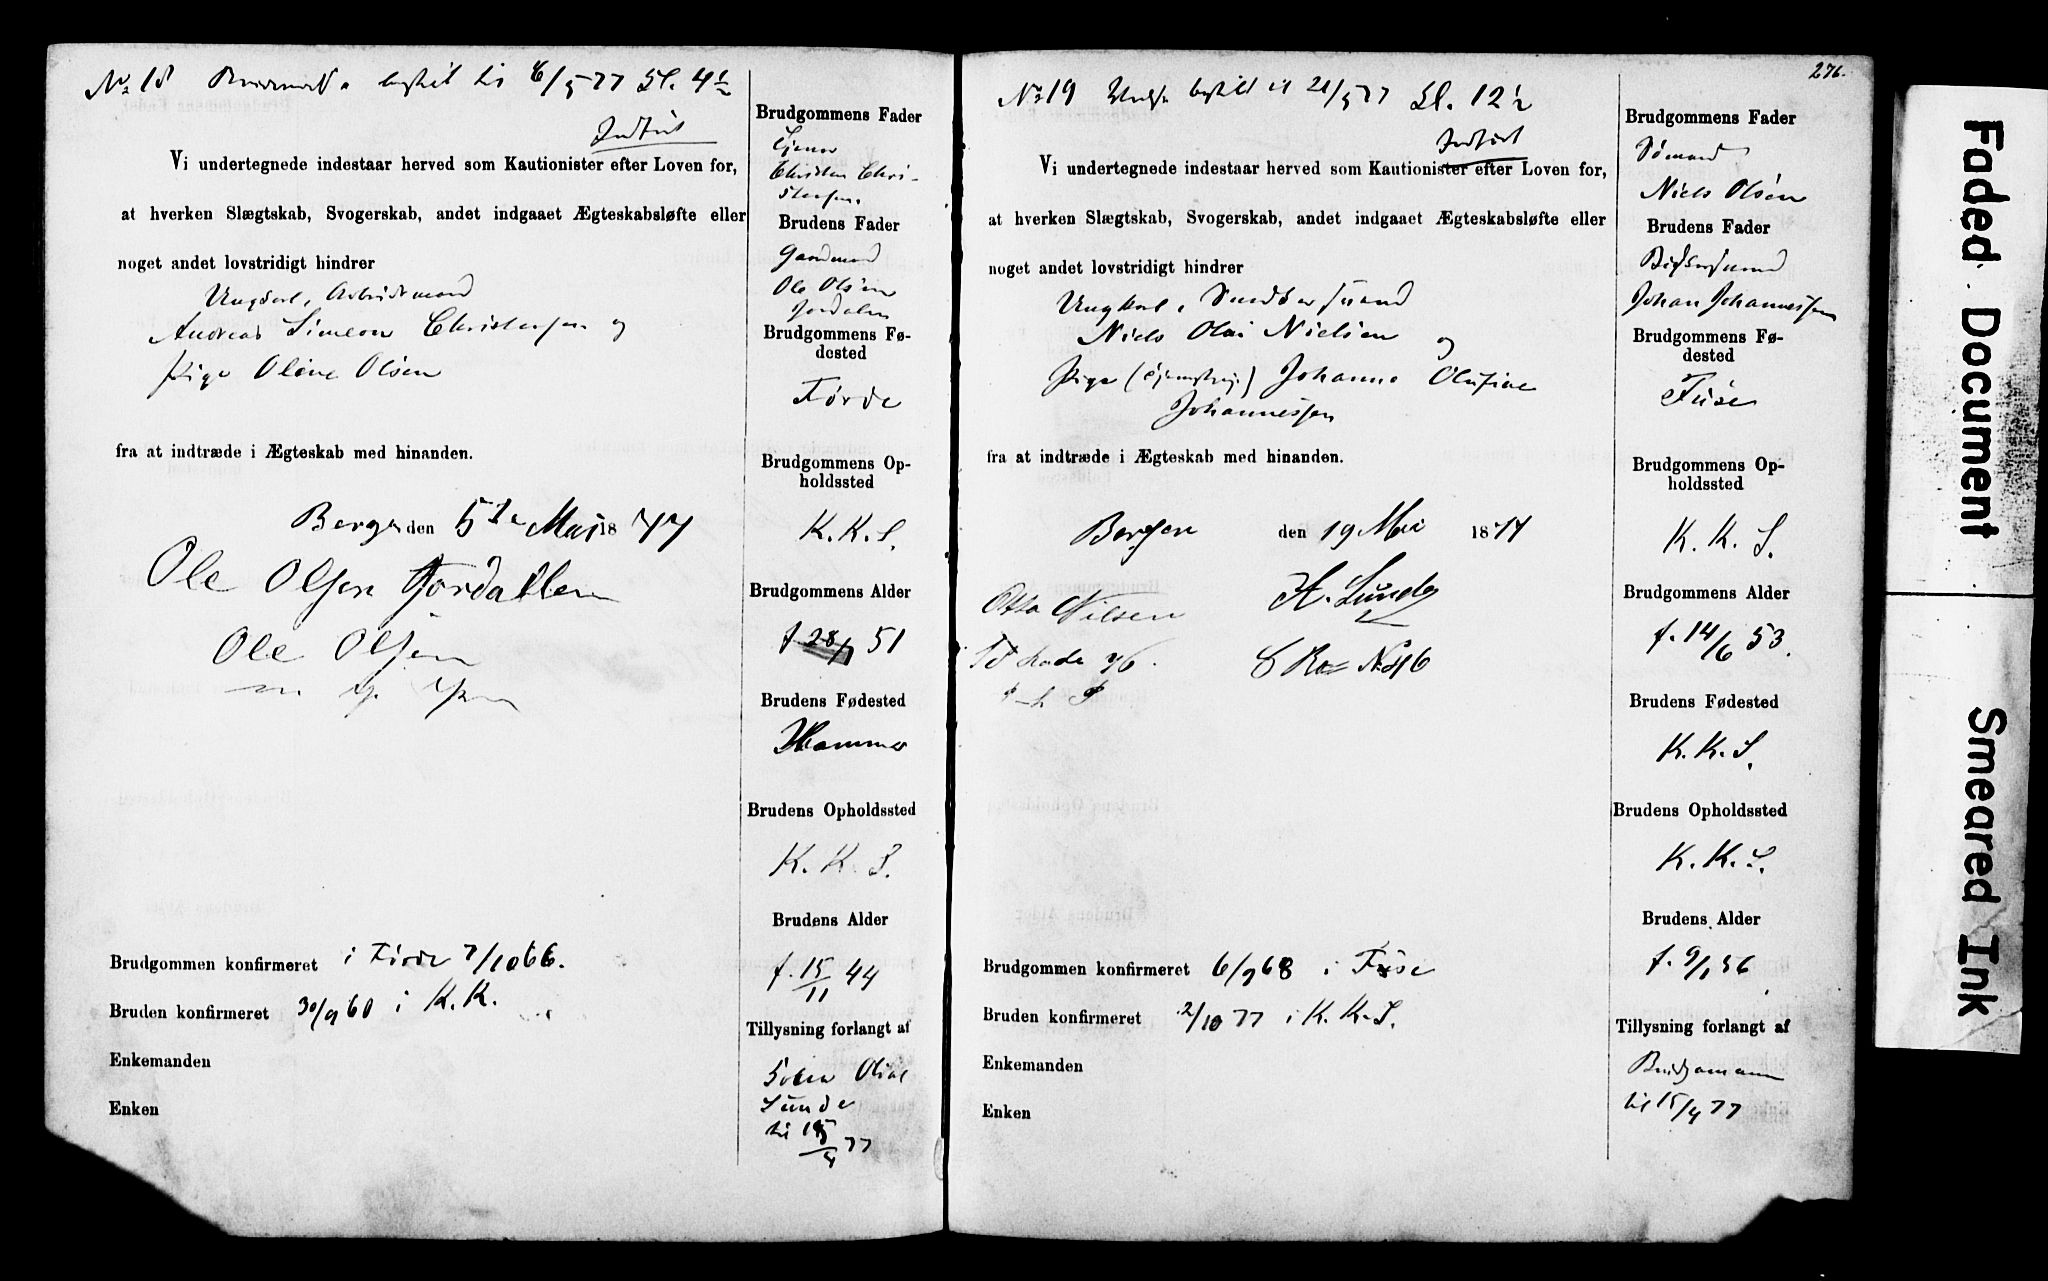 No 18 bestilt til 6/5 77 Kl. 4½
Indført
Vi undertegnede indestaar herved som Kautionister efter Loven for,
at hverken Slægtskab, Svogerskab, andet indgaaet Ægteskabsløfte eller
noget andet lovstridigt hindrer
Ungkarl, Arbeidsmand
Andreas Simeon Christensen og
Pige Oline Olsen
fra at indtræde i Ægteskab med hinanden.
Bergen den 5te Mai 1877
Ole Olsen Jordallen
Ole Olsen
Brudgommen konfirmeret i Førde 7/10 66.
Bruden konfirmeret 30/9 60 i K. K.
Enkemanden
Enken
Brudgommens Fader
Christen Chri-
stensen.
Brudens Fader
Gaardmand
Ole Olsen
Jordalen
Brudgommens Fø-
dested
Førde
Brudgommens Op-
holdssted
K. K. S.
Brudgommens Alder
f. 28/1 51
Brudens Fødested
Hammer
Brudens Opholdssted
K. K. S.
Brudens Alder
f. 15/11 44
Tillysning forlangt af
Lunde
til 15/4 77
276.
No 19 bestilt til 21/5 77 Kl. 12½
Indført
Vi undertegnede indestaar herved som Kautionister efter Loven for,
at hverken Slægtskab, Svogerskab, andet indgaaet Ægteskabsløfte eller
noget andet lovstridigt hindrer
Ungkarl,
Niels Olai Nielsen og
Pige Johanne Olufine
Johannessen
fra at indtræde i Ægteskab med hinanden.
Bergen den 19 Mai 1877
Otto Nilsen A. Lunde
Brudgommen konfirmeret 6/9 68 i Fuse
Bruden konfirmeret 2/10 77 i K. K. S.
Enkemanden
Enken
Brudgommens Fader
Sømand
Niels Olsen
Brudens Fader
Johan Johannessen
Brudgommens Fø-
dested
Fuse
Brudgommens Op-
holdssted
K. K. S.
Brudgommens Alder
f. 14/6 53.
Brudens Fødested
K. K. S.
Brudens Opholdssted
K. K. S.
Brudens Alder
f. 9/1 56
Tillysning forlangt af
Brudgommen
til 15/4 77
Faded Document
Smeared Ink